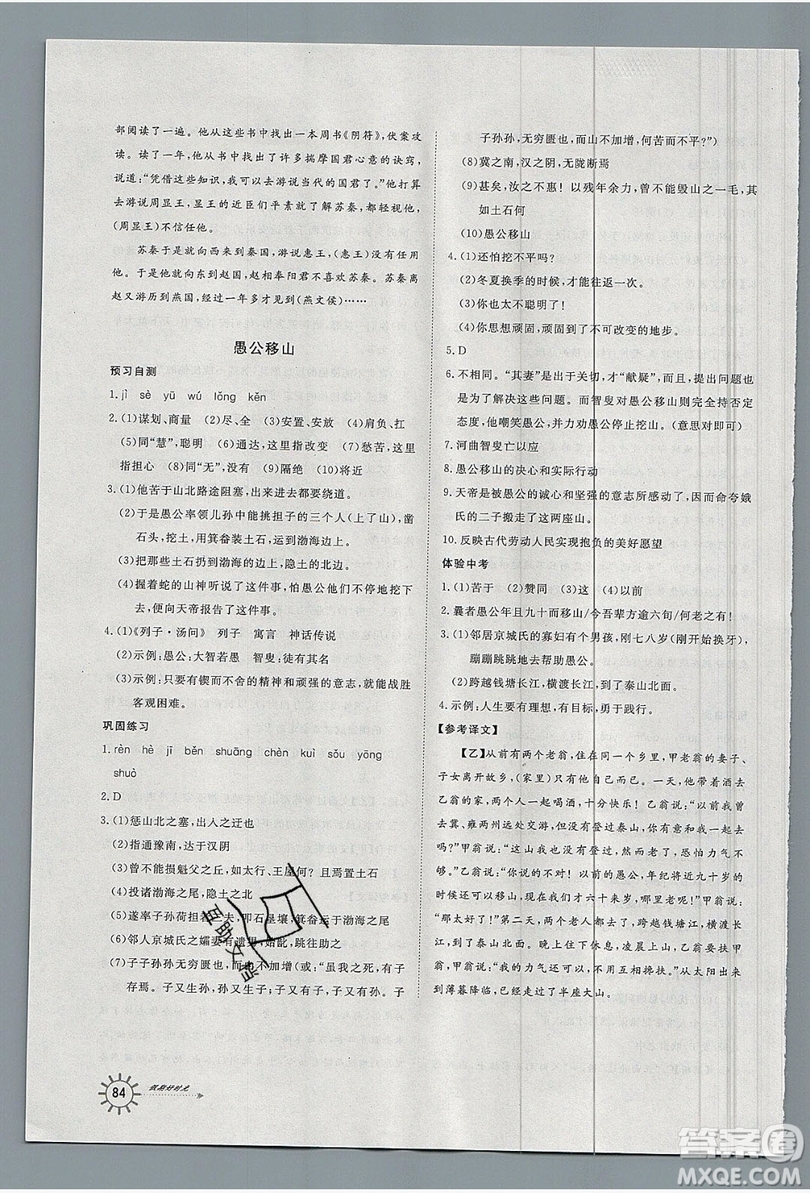 部阅读了一遍。他从这些书中找出一本周书《阴符》，伏案攻
读。读了一年，他从书中找出了许多揣摩国君心意的诀窍，
说道：“凭借这些知识，我可以游说当代的国君了。”他打算
去游说周显王，显王的近臣们平素就了解苏秦，都轻视他，
(周显王)不信任他。
苏秦于是就向西来到秦国，游说惠王，(惠王)没有任用
他。于是他就向东到赵国，赵相奉阳君不喜欢苏秦。苏秦离
赵又游历到燕国，经过一年多才见到(燕文侯)……
愚公移山
预习自测
1. jì sè yū wú lǒng kěn
2. (1)谋划、商量 (2)尽、全 (3)安置、安放 (4)肩负、扛
(5)同“慧”，聪明 (6)通达，这里指改变 (7)愁苦，这里
指担心 (8)同“无”，没有 (9)隔绝 (10)将近
3. (1)他苦于山北路途阻塞，出来进去要绕道。
(2)于是愚公率领儿孙中能挑担子的三个人(上了山)，凿
石头，挖土，用箕畚装土石，运到渤海边上。
(3)把那些土石扔到渤海的边上，隐土的北边。
(4)握着蛇的山神听说了这件事，怕愚公他们不停地挖下
去，便向天帝报告了这件事。
4. (1)《列子·汤问》 列子 寓言 神话传说
(2)示例：愚公：大智若愚 智叟：徒有其名
(3)示例：只要有锲而不舍的精神和顽强的意志，就能战胜
客观困难。
巩固练习
1. rèn hè jī běn shuāng chèn kuì sǒu yōng
shuò
2. D
3. (1)惩山北之塞，出入之迂也
(2)指通豫南，达于汉阴
(3)曾不能损魁父之丘，如太行、王屋何？且焉置土石
(4)投诸渤海之尾，隐土之北
(5)遂率子孙荷担者三夫，叩石垦壤，箕畚运于渤海之尾
(6)邻人京城氏之孀妻有遗男，始龀，跳往助之
(7)子子孙孙无穷匮也，而山不加增(或：“虽我之死，有子
存焉。子又生孙，孙又生子；子又有子，子又有孙。子
子孙孙，无穷匮也，而山不加增，何苦而不平？”)
(8)冀之南，汉之阴，无陇断焉
(9)甚矣，汝之不惠！以残年余力，曾不能毁山之一毛，其
如土石何
(10)愚公移山
4. (1)还怕挖不平吗？
(2)冬夏换季的时候，才能往返一次。
(3)你也太不聪明了！
(4)你思想顽固，顽固到了不可改变的地步。
5. D
6. 不相同。“其妻”是出于关切，才“献疑”，而且，提出问题也
是为了解决这些问题。而智叟对愚公移山则完全持否定
态度，他嘲笑愚公，并力劝愚公停止挖山。(意思对即可)
7. 河曲智叟亡以应
8. 愚公移山的决心和实际行动
9. 天帝被愚公的诚心和坚强的意志所感动了，就命令夸娥
氏的二子搬走了这两座山。
10. 反映古代劳动人民实现抱负的美好愿望
体验中考
1. (1)苦于 (2)赞同 (3)这 (4)以前
2. 曩者愚公年且九十而移山/今吾辈方逾六旬/何老之有！
3. (1)邻居京城氏的寡妇有个男孩，刚七八岁(刚开始换牙)，
蹦蹦跳跳地去帮助愚公。
(2)跨越钱塘江，横渡长江，到了泰山北面。
4. 示例：人生要有理想，有目标，勇于践行。
【参考译文】
【乙】从前有两个老翁，住在同一个乡里，甲老翁的妻子、
子女离开故乡，(家里)只有他自己而已。一天，他带着酒去
拜访乙翁，两个人一起喝酒，十分快乐！乙翁说：“以前我曾
去冀、雍两州远处交游，但没有登过泰山，心里感到遗憾，你
有没有与我同行的意愿？”甲翁说：“这山我也没有登过，总是
想着这件事，但是老了，恐怕力气不够。”乙翁说：“你说的不
对吧？！以前的愚公，年纪将近九十岁的
时候还可以移山，现在我们才六十来岁，哪里老呢！”甲翁说：
“那太好了！”第二天，两个老翁都去了，跨越钱塘江，横渡长
江，走着到泰山北面。晚上住下休息，凌晨上山，乙翁要扶
他，甲翁说：“我的力气还可以，不用互相搀扶。”从太阳出来
到薄暮降临，已经走过了半座大山。
84
假期好时光
答案圈
MXQE.COM